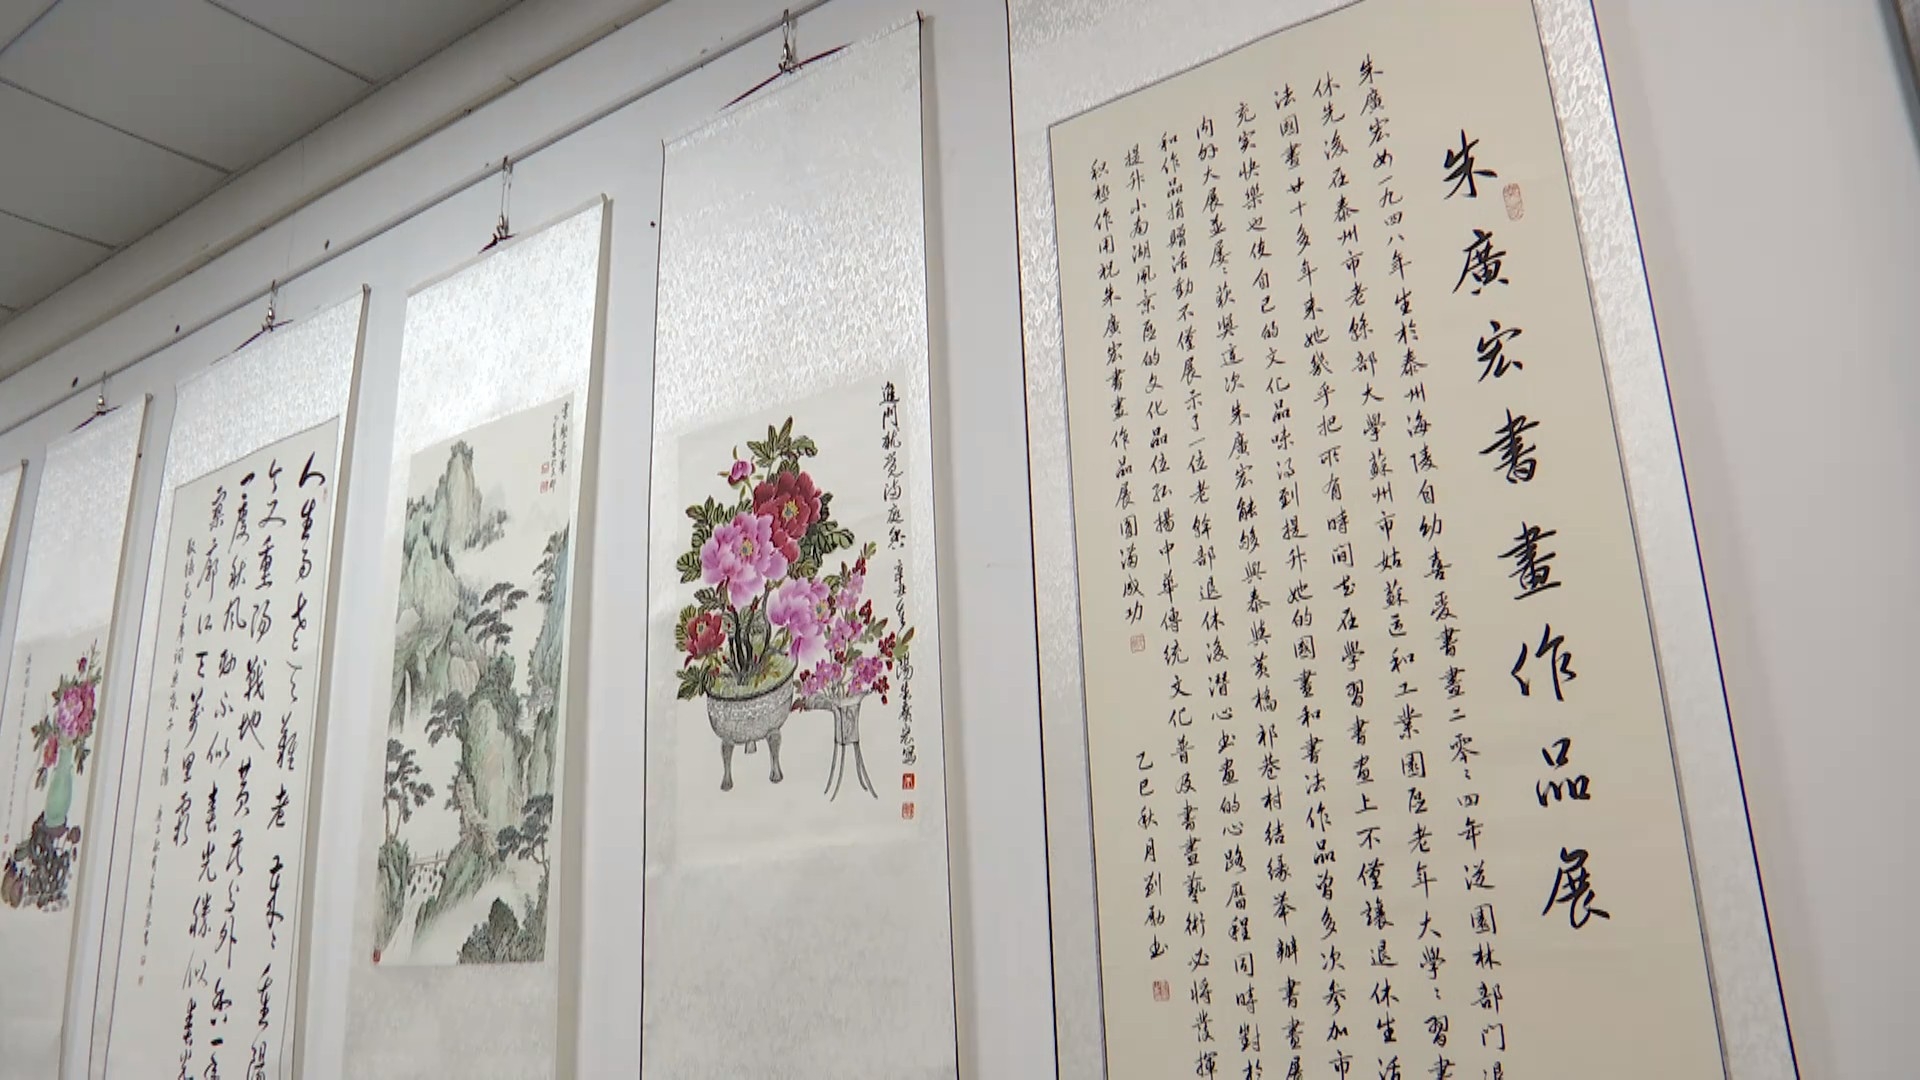 朱廣宏書畫作品展
朱廣宏女一九四八年生於泰州海陵自幼喜愛書畫二零零四年從園林部門退
休先後在泰州市老幹部大學蘇州市姑蘇區和工業園區老年大學學習書
法國畫廿十多年來她幾乎把所有時間花在學習書畫上不僅讓退休生活
充實快樂也使自己的文化品味得到提升她的國畫和書法作品曾多次參加市
內外大展並屢屢獲獎這次朱廣宏能夠與泰興黃橋祁巷村結緣舉辦書畫展
和作品捐贈活動不僅展示了一位老幹部退休後潛心書畫的心路歷程同時對於
提升小南湖風景區的文化品位弘揚中華傳統文化普及書畫藝術必將發揮
積極作用祝朱廣宏書畫作品展圓滿成功
乙巳秋月劉勵書
進門就覺滿庭香
人生易老天難老歲歲重陽
今又重陽戰地黃花分外香一年
一度秋風勁不似春光勝似春光
寥廓江天萬里霜